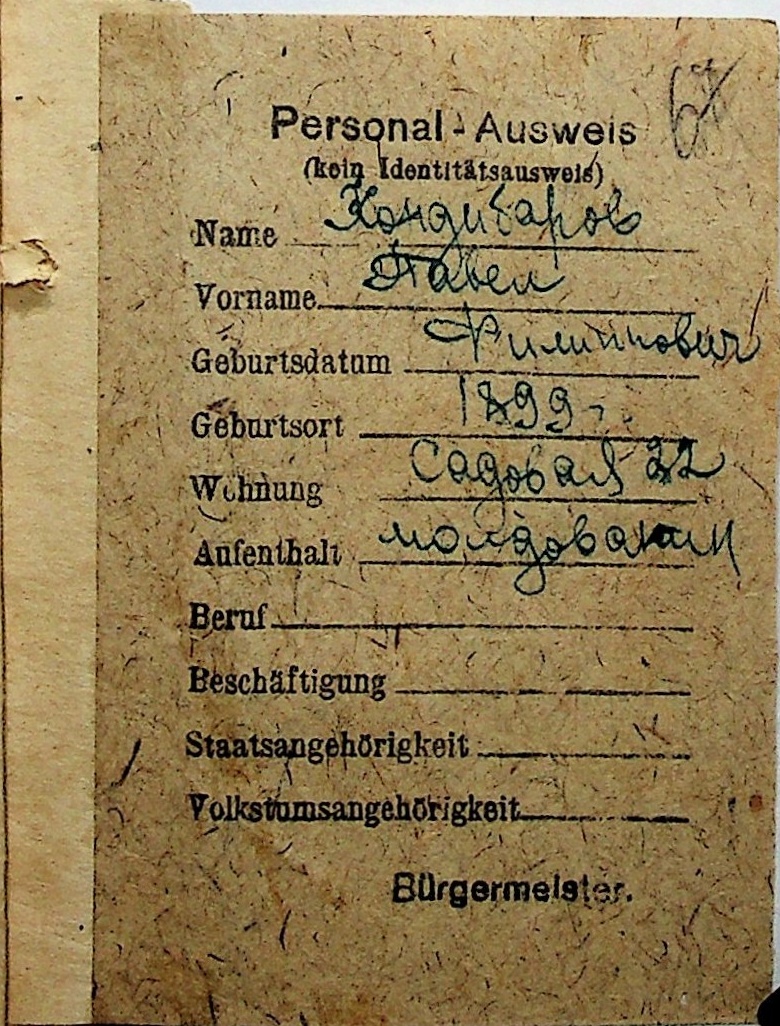 67
Personal - Ausweis
(kein Identitätsausweis)
Name Кондибаров
Vorname Павел
Geburtsdatum Филиппович
Geburtsort 1899 г.
Wohnung Садовая 22
Aufenthalt молдованин
Beruf
Beschäftigung
Staatsangehörigkeit
Volkstumsangehörigkeit
Bürgermeister.